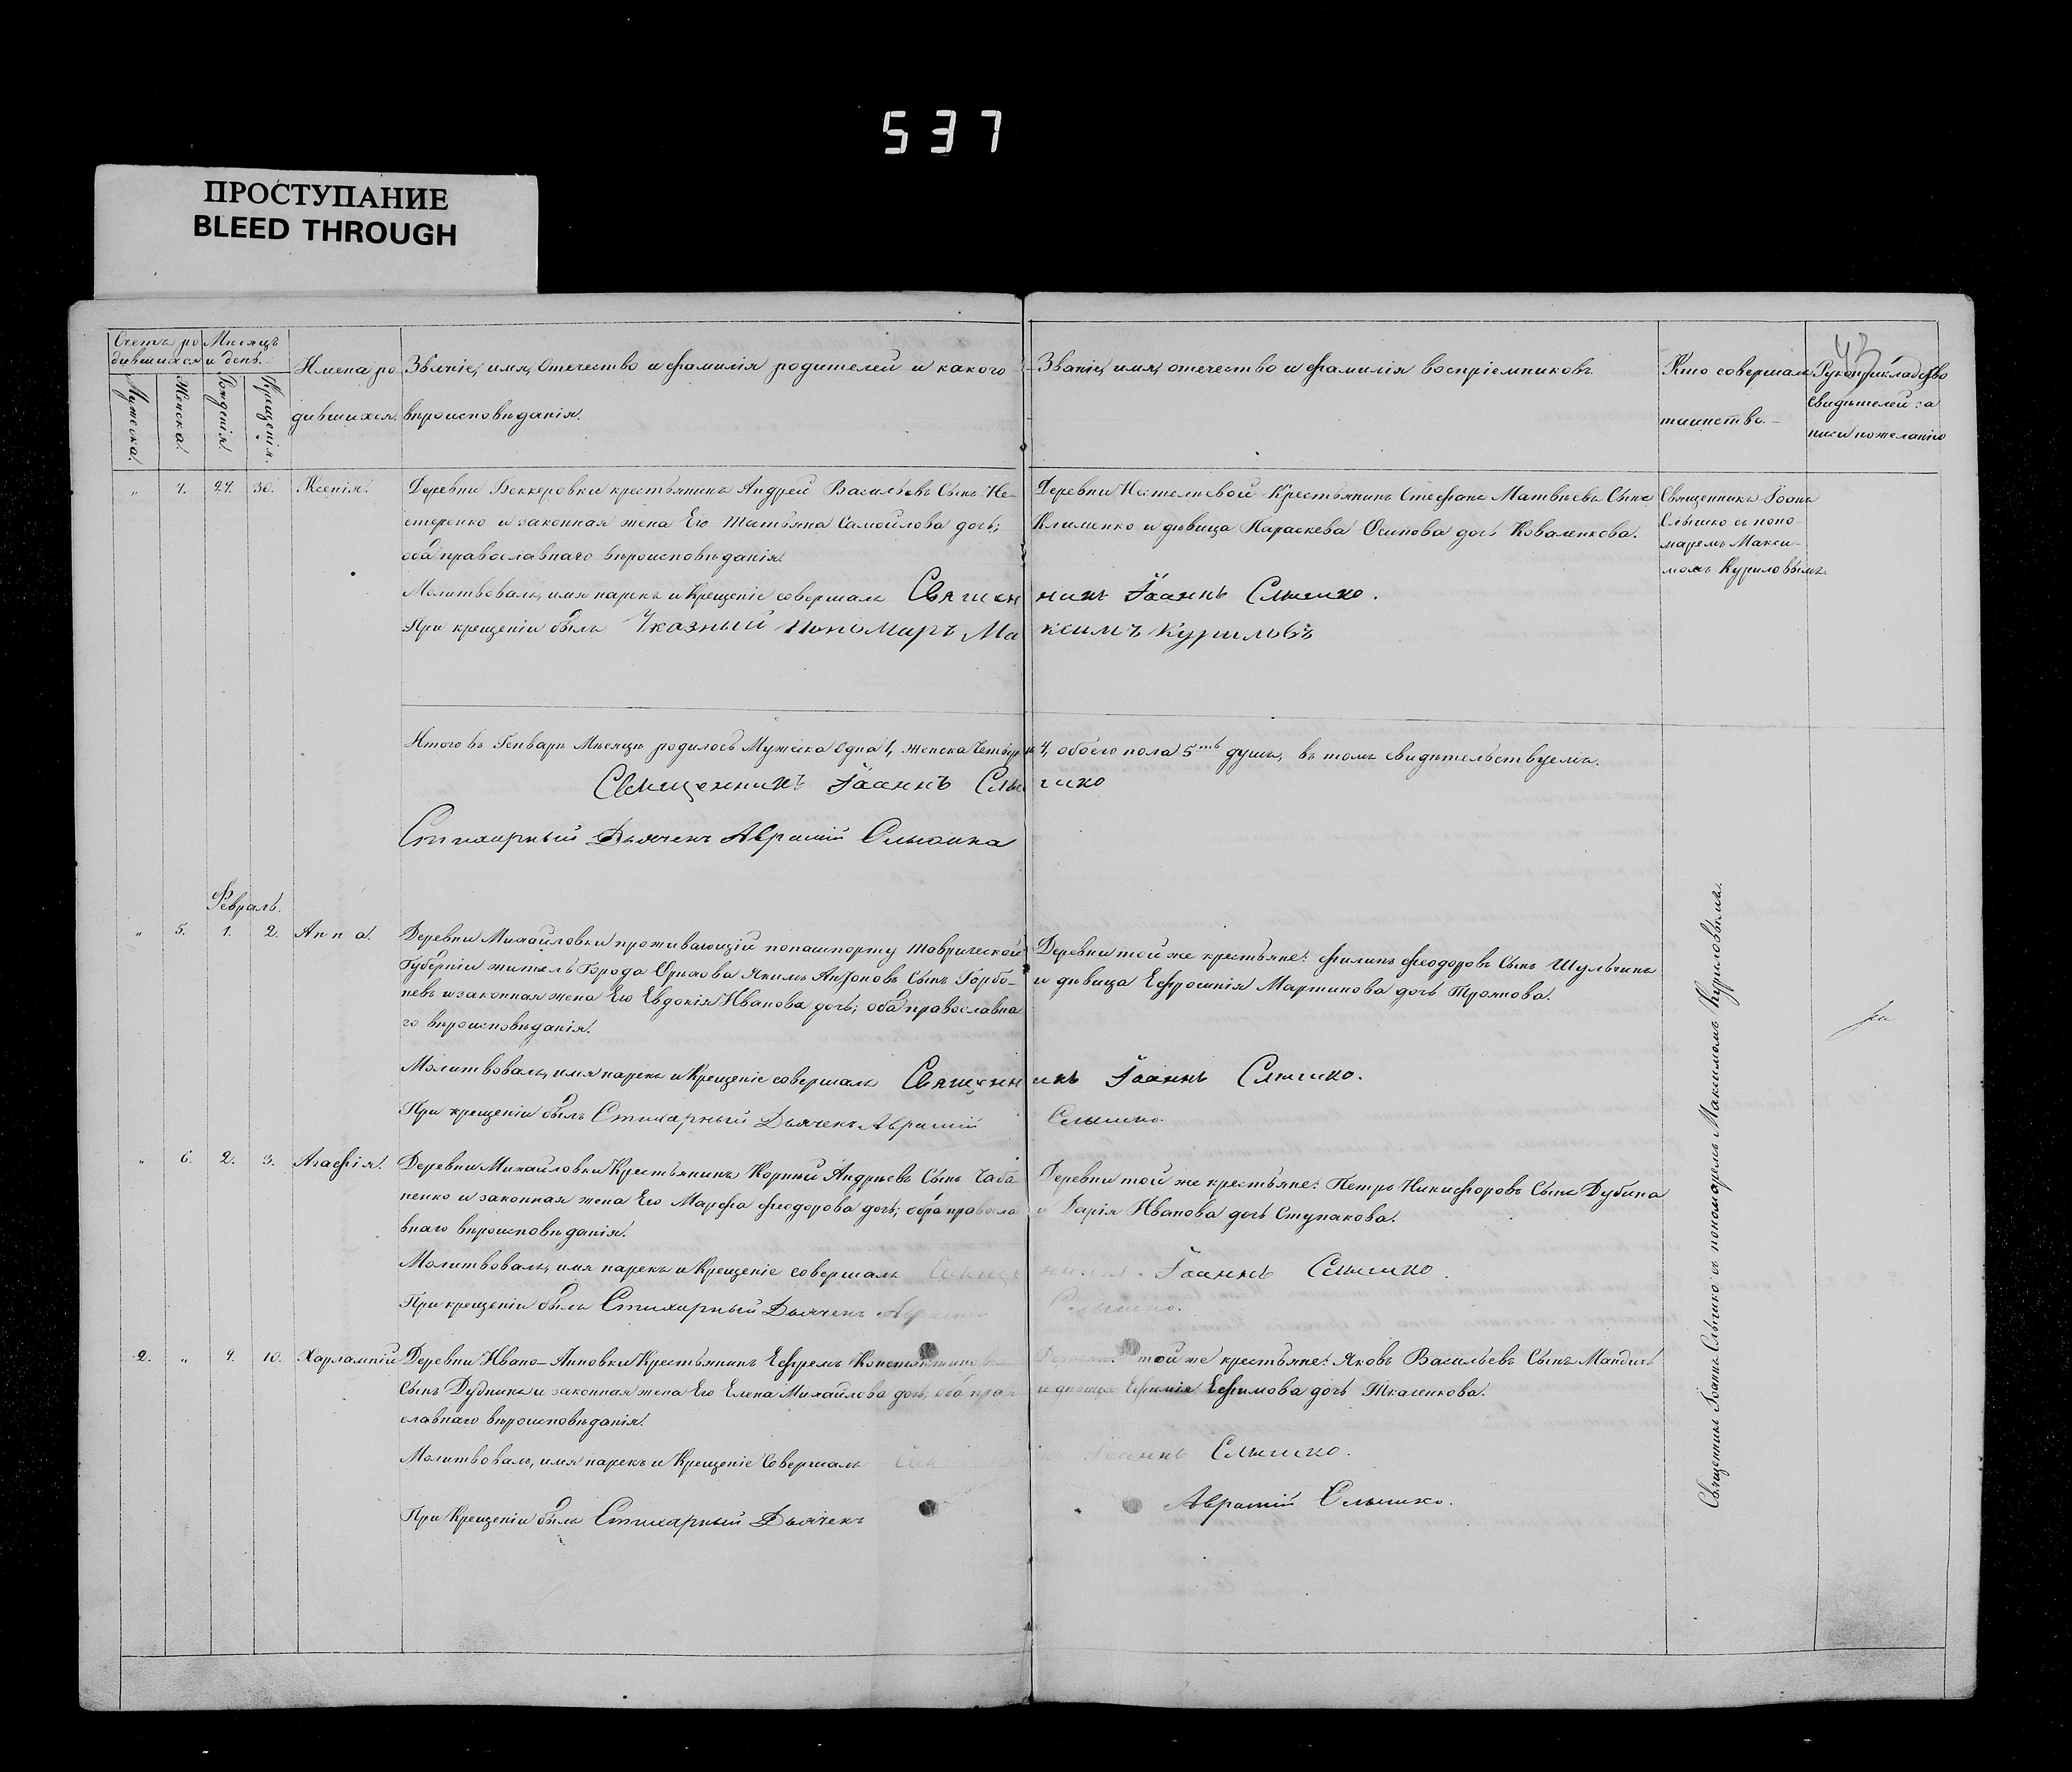 537
ПРОСТУПАНИЕ
BLEED THROUGH
43
Счетъ ро
дившихся
Мѣсяцъ
и день.
Имена ро
дившихся.
Званіе, имя, отечество и фамилія родителей и какого
вѣроисповѣданія.
Званіе, имя, отечество и фамилія воспріемниковъ.
Кто совершалъ
таинство.
Рукоприкладство
свидѣтелей за
писи по желанію
Мужеска.
Женска.
Рожденія.
Крещенія.
„ 4. 24. 30. Ксенія.
Деревни Беккеровки крестьянинъ Андрей Васильевъ Сынъ Не-
стеренко и законная жена Его Татьяна Самойлова дочь;
оба православнаго вѣроисповѣданія.
Деревни Нестелиевой Крестьянинъ Стефанъ Матвѣевъ Сынъ
Клименко и дѣвица Параскева Осипова дочь Коваленкова.
Священникъ Іоанъ
Слышко съ поно-
маремъ Макси-
момъ Куриловымъ.
Молитвовалъ, имя нарекъ и Крещеніе совершалъ Священникъ Іоаннъ Слышко.
При крещеніи былъ Указный Пономаръ Максимъ Куриловъ
Итого въ Генварѣ Мѣсяцѣ родилось Мужеска Одна 1, женска Четыри 4, обоего пола 5ть душъ, въ томъ свидѣтельствуемъ.
Священникъ Іоаннъ Слышко
Стихарный Дьячекъ Аврамій Слышка
Февраль.
„ 5. 1. 2. Анна.
Деревни Михайловки проживающій по пашпорту Таврической
Губерніи житель Города Орѣхова Якимъ Антоновъ Сынъ Горбо-
невъ и законная жена Его Евдокія Иванова дочь; оба православна
го вѣроисповѣданія.
Деревни той же крестьяне: Филипъ Феодоровъ Сынъ Шульчинъ
и дѣвица Ефросинія Мартинова дочь Троянова.
Молитвовалъ, имя нарекъ и Крещеніе совершалъ Священникъ Іоаннъ Слышко.
При крещеніи былъ Стихарный Дьячекъ Аврамій Слышко.
„ 6. 2. 3. Агафія.
Деревни Михайловки Крестьянинъ Корній Андрѣевъ Сынъ Чаба
ненко и законная жена Его Марфа Феодорова дочь; оба правосла
внаго вѣроисповѣданія.
Деревни той же крестьяне: Петръ Никифоровъ Сынъ Дубина
и Дарія Иванова дочь Ступакова.
Молитвовалъ, имя нарекъ и Крещеніе совершалъ Священникъ Іоаннъ Слышко.
При крещеніи былъ Стихарный Дьячекъ Аврамій Слышко.
2. „ 4. 10. Харлампій
Деревни Ивано-Анновки Крестьянинъ Ефремъ Константиновъ
Сынъ Дудника и законная жена Его Елена Михайлова дочь, оба право
славнаго вѣроисповѣданія.
Деревни той же крестьяне: Яковъ Васильевъ Сынъ Мандичь
и дѣвица Ефимія Ефимова дочь Ткаченкова.
Молитвовалъ, имя нарекъ и Крещеніе Совершалъ Іоаннъ Слышко.
При Крещеніи былъ Стихарный Дьячекъ Аврамій Слышко.
Священникъ Іоаннъ Слышко съ пономаремъ Максимомъ Куриловымъ.